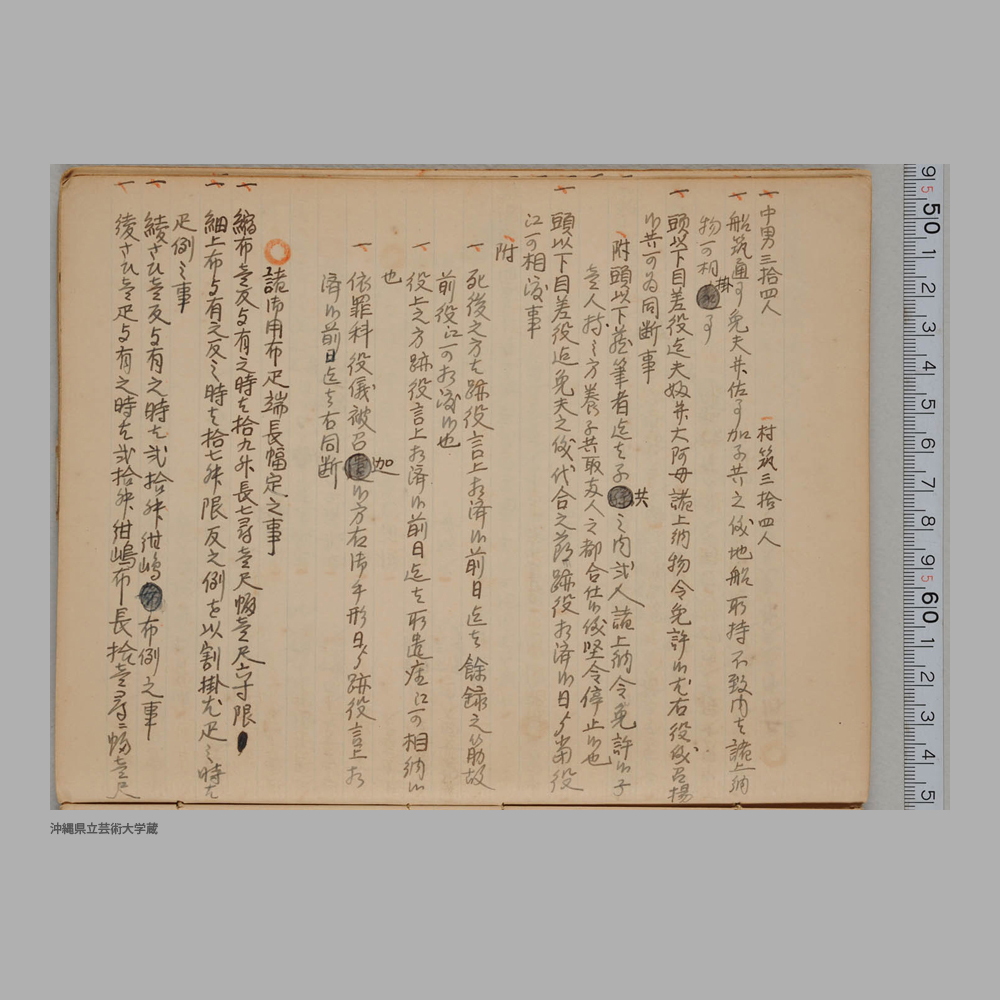 一 中男三拾四人
一 村筑三拾四人
一 船筑通事免夫并佐事加子共之儀地船取持不致内者諸上納
物可相掛事
一 頭以下目差役迄夫奴并大阿母諸上納物令免許候尤右役儀召揚
候共可為同断事
附 頭以下若筆者迄者子共之内弐人諸上納令免許候子
壱人持之方養子共取友人之都合仕候儀堅令停止候也
一 頭以下目差役迄免夫之儀代合之節跡役相済候日より当役
江可相渡事
附
一 死後之方者跡役言上相済候前日迄者餘録之筋故
前役江可相渡候也
一 役上之方跡役言上相済候前日迄者所遣座江可相納候
也
一 依罪科役儀被召迦候方右御手形日より跡役言上相
済候前日迄者右同断
諸御用布疋端長幅定之事
一 縮布壱反与有之時者拾九舛長七尋壱尺幅壱尺六寸限
一 細上布与有之反之時者拾七舛限反之例を以割掛尤疋之時者
疋例之事
一 綾さひ壱反与有之時者弐拾舛紺嶋布例之事
一 綾さひ壱疋与有之時者弐拾舛紺嶋布長拾壱尋二幅壱尺
沖縄県立芸術大学蔵